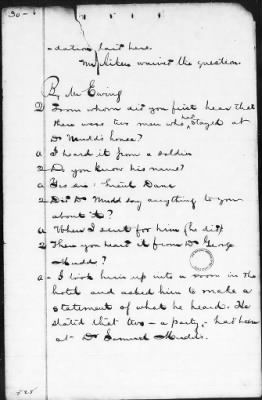 30 -
- dation laid here.
Mr Aiken waived the question.
By Mr Ewing
Q From whom did you first hear that
there were two men who had stayed at
Dr Mudd's house?
a I heard it from a soldier
Q Do you know his name?
a Yes sir: Lieut Dana
Q Did Dr Mudd say anything to you
about it?
a When I sent for him (he did)
Q Then you heard it from Dr George
Mudd?
a - I took him up into a room in the
hotel and asked him to make a
statement of what he heard. He
stated that two - a party, - had been
at Dr Samuel Mudd's.